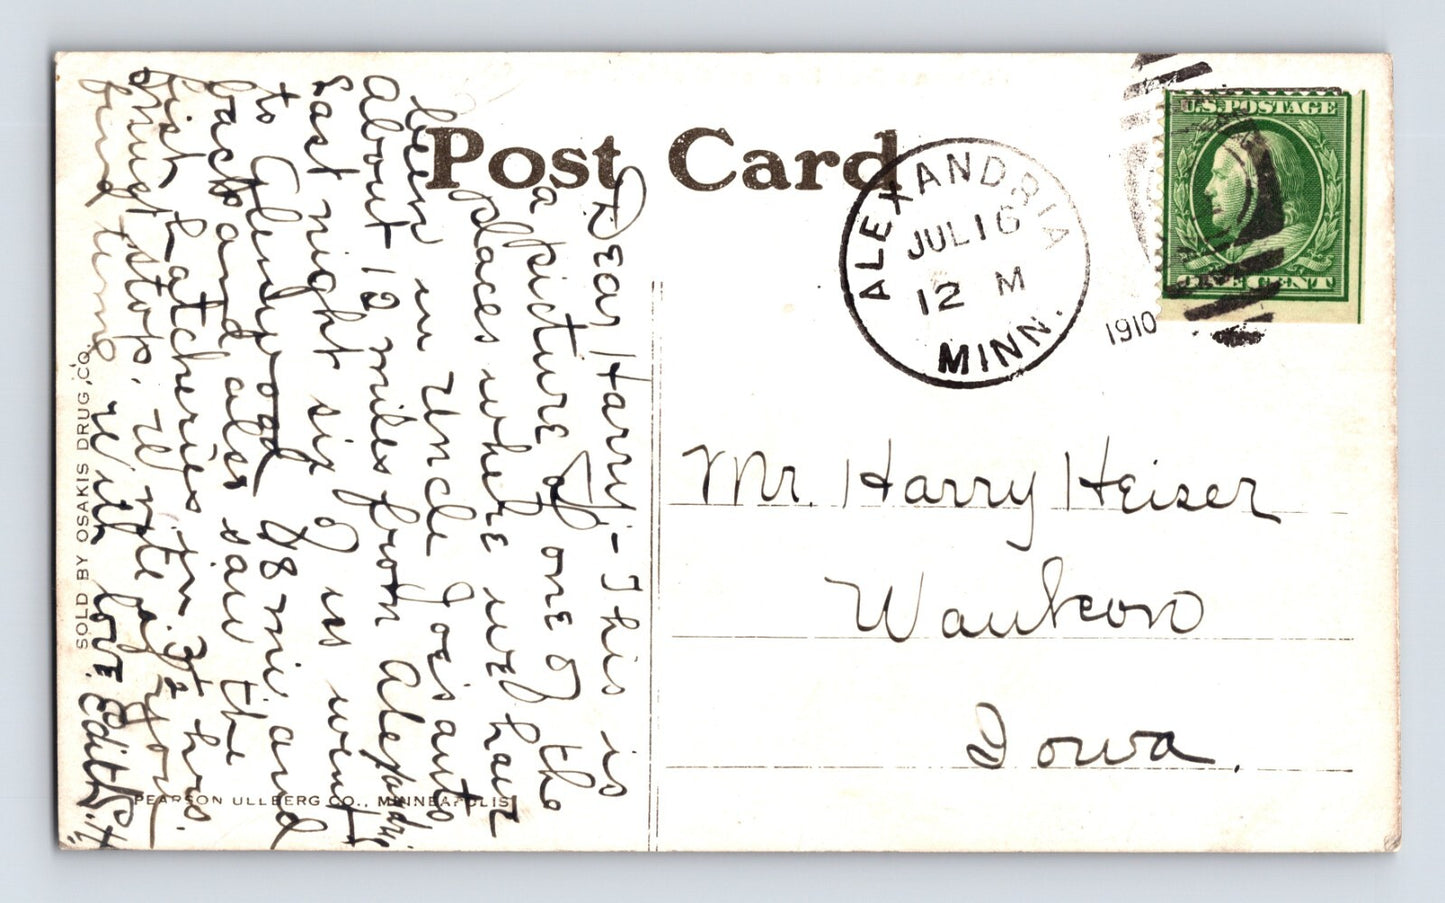 Post Card
U.S. POSTAGE
ONE CENT
ALEXANDRIA
JUL 16
12 M
1910
MINN.
Mr. Harry Heiser
Waukon
Iowa.
Dear Harry:- This is
a picture of one of the
places where we have
been in Uncle Joe's auto
About 12 miles from Alexandria
Last night six of us went
to Glenwood 88 mi. and
back and also saw the
fish hatcheries in 3½ hrs.
without stop. Write if you
find time. With love Edith H.
SOLD BY OSAKIS DRUG CO.
PEARSON ULLBERG CO., MINNEAPOLIS